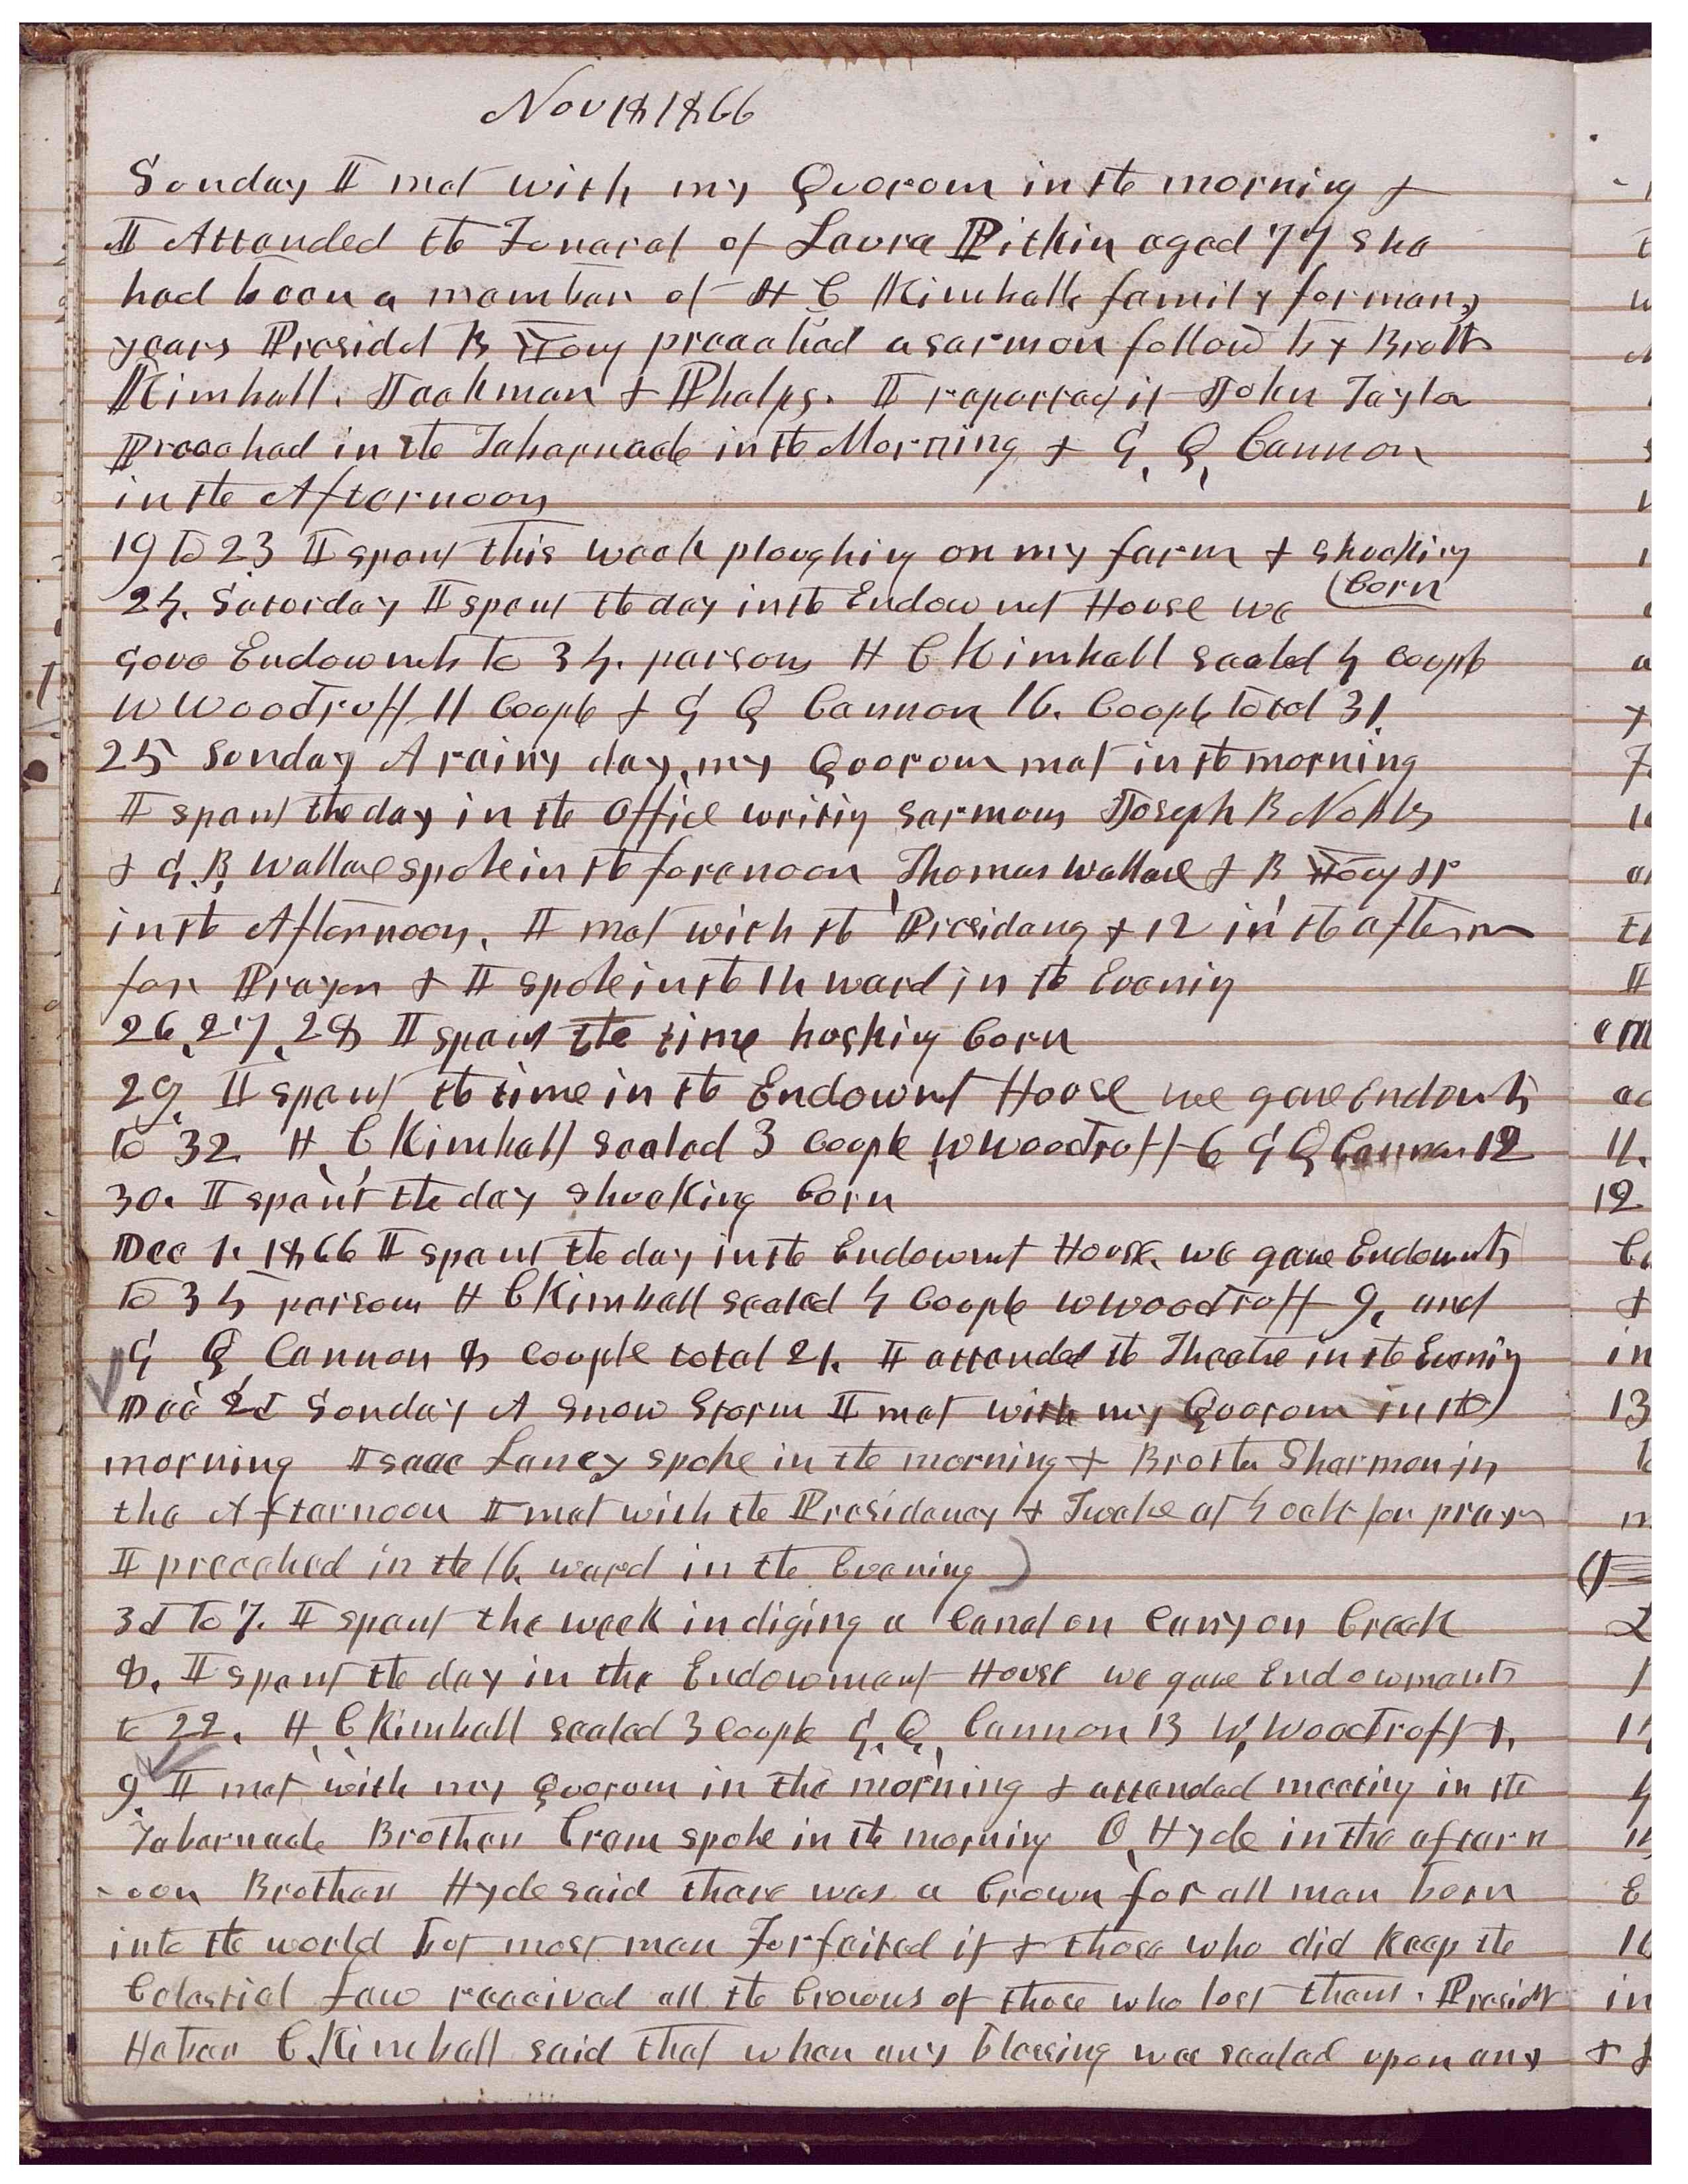 Nov 18 1866
Sunday I met with my Quorom in the morning &
I Attended the Funeral of Laura Pitkin aged 77 she
had been a member of H C Kimballs family for many
years Presidet B Young preached a sermon followd by Broths
Kimball. Jackman & Phelps. I reported it John Taylor
Preached in the Tabernacle in the Morning & G, Q, Cannon
in the Afternoon
19 to 23 I spent this week ploughing on my farm & shucking
24. Saturday I spent the day in the Endowmet House we (Corn
gave Endowmets to 34. persons H C Kimball sealed 4 Couple
W Woodruff 11 Couple & G Q Cannon 16. Couple total 31.
25 Sunday A rainy day, my Quorom met in the morning
I spent the day in the Office writing sermons Joseph B Nobles
& G. B, Wallace spoke in the forenoon Thomas Wallace & B Young jr
in the Afternoon. I met with the Presidency & 12 in the afternn
for Prayer & I spoke in the 14 ward in the Evenig
26, 27, 28 I spent the time husking Corn
29. I spent the time in the Endowmt House we gave Endowmts
to 32 H, C Kimball sealed 3 Couple W Woodruff 6 G Q Cannon 12
30. I spent the day shucking Corn
Dec 1. 1866 I spent the day in the Endowmt House. we gave Endowmts
to 34 persons H C Kimball sealed 4 Couple W Woodruff 9, and
G Q, Cannon 8 couple total 21. I attended the Theatre in the Evenig
Dec 2d Sunday A Snow Storm I met with my Quorom in the
morning Isaac Laney spoke in the morning & Brother Sharman in
the Afternoon I met with the Presidency & Twelve at 4 oclk for prayer
I preached in the 16. ward in the Evening)
3d to 7. I spent the week in diging a Canal on Canyon Creek
8. I spent the day in the Endowment House we gave Endowments
to 22. H, C Kimball sealed 3 Couple G. Q, Cannon 13 W, Woodruff 1.
9. I met with my Quorom in the morning & attended meeting in the
Tabernacle Brother Cram spoke in the morning O, Hyde in the aftern
-oon Brother Hyde said there was a Crown for all men born
into the world but most men Forfeited it & those who did keep the
Celestial Law received all the Crowns of those who lost them. Presidt
Heber C. Kimball said that when any blessing was sealed upon any